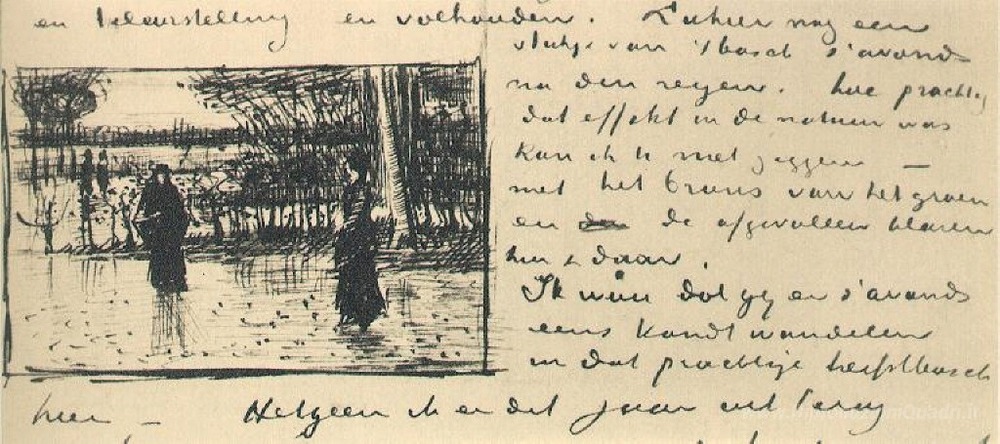 en teleurstelling en volhouden. Ziehier nog een
van 't bosch s'avonds
na den regen. hoe prachtig
dat effekt in de natuur was
kan ik U niet zeggen —
met het brons van het groen
en de afgevallen blaren
hier & daar.
Ik wou dat gij er s'avonds
eens kondt wandelen
in dat prachtige herfstbosch
hier — Hetgeen ik er dit jaar uit